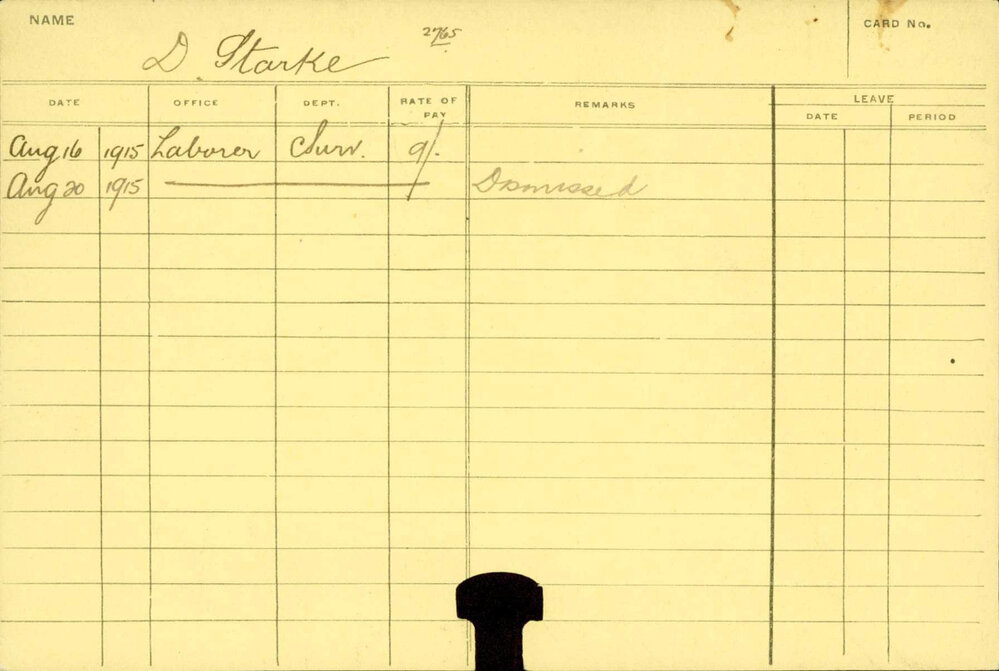 NAME
D. Starke
CARD No.
DATE OFFICE DEPT. RATE OF PAY REMARKS LEAVE
DATE PERIOD
Aug 16 1915 Laborer Surv. 9/-
Aug 20 1915 Dismissed